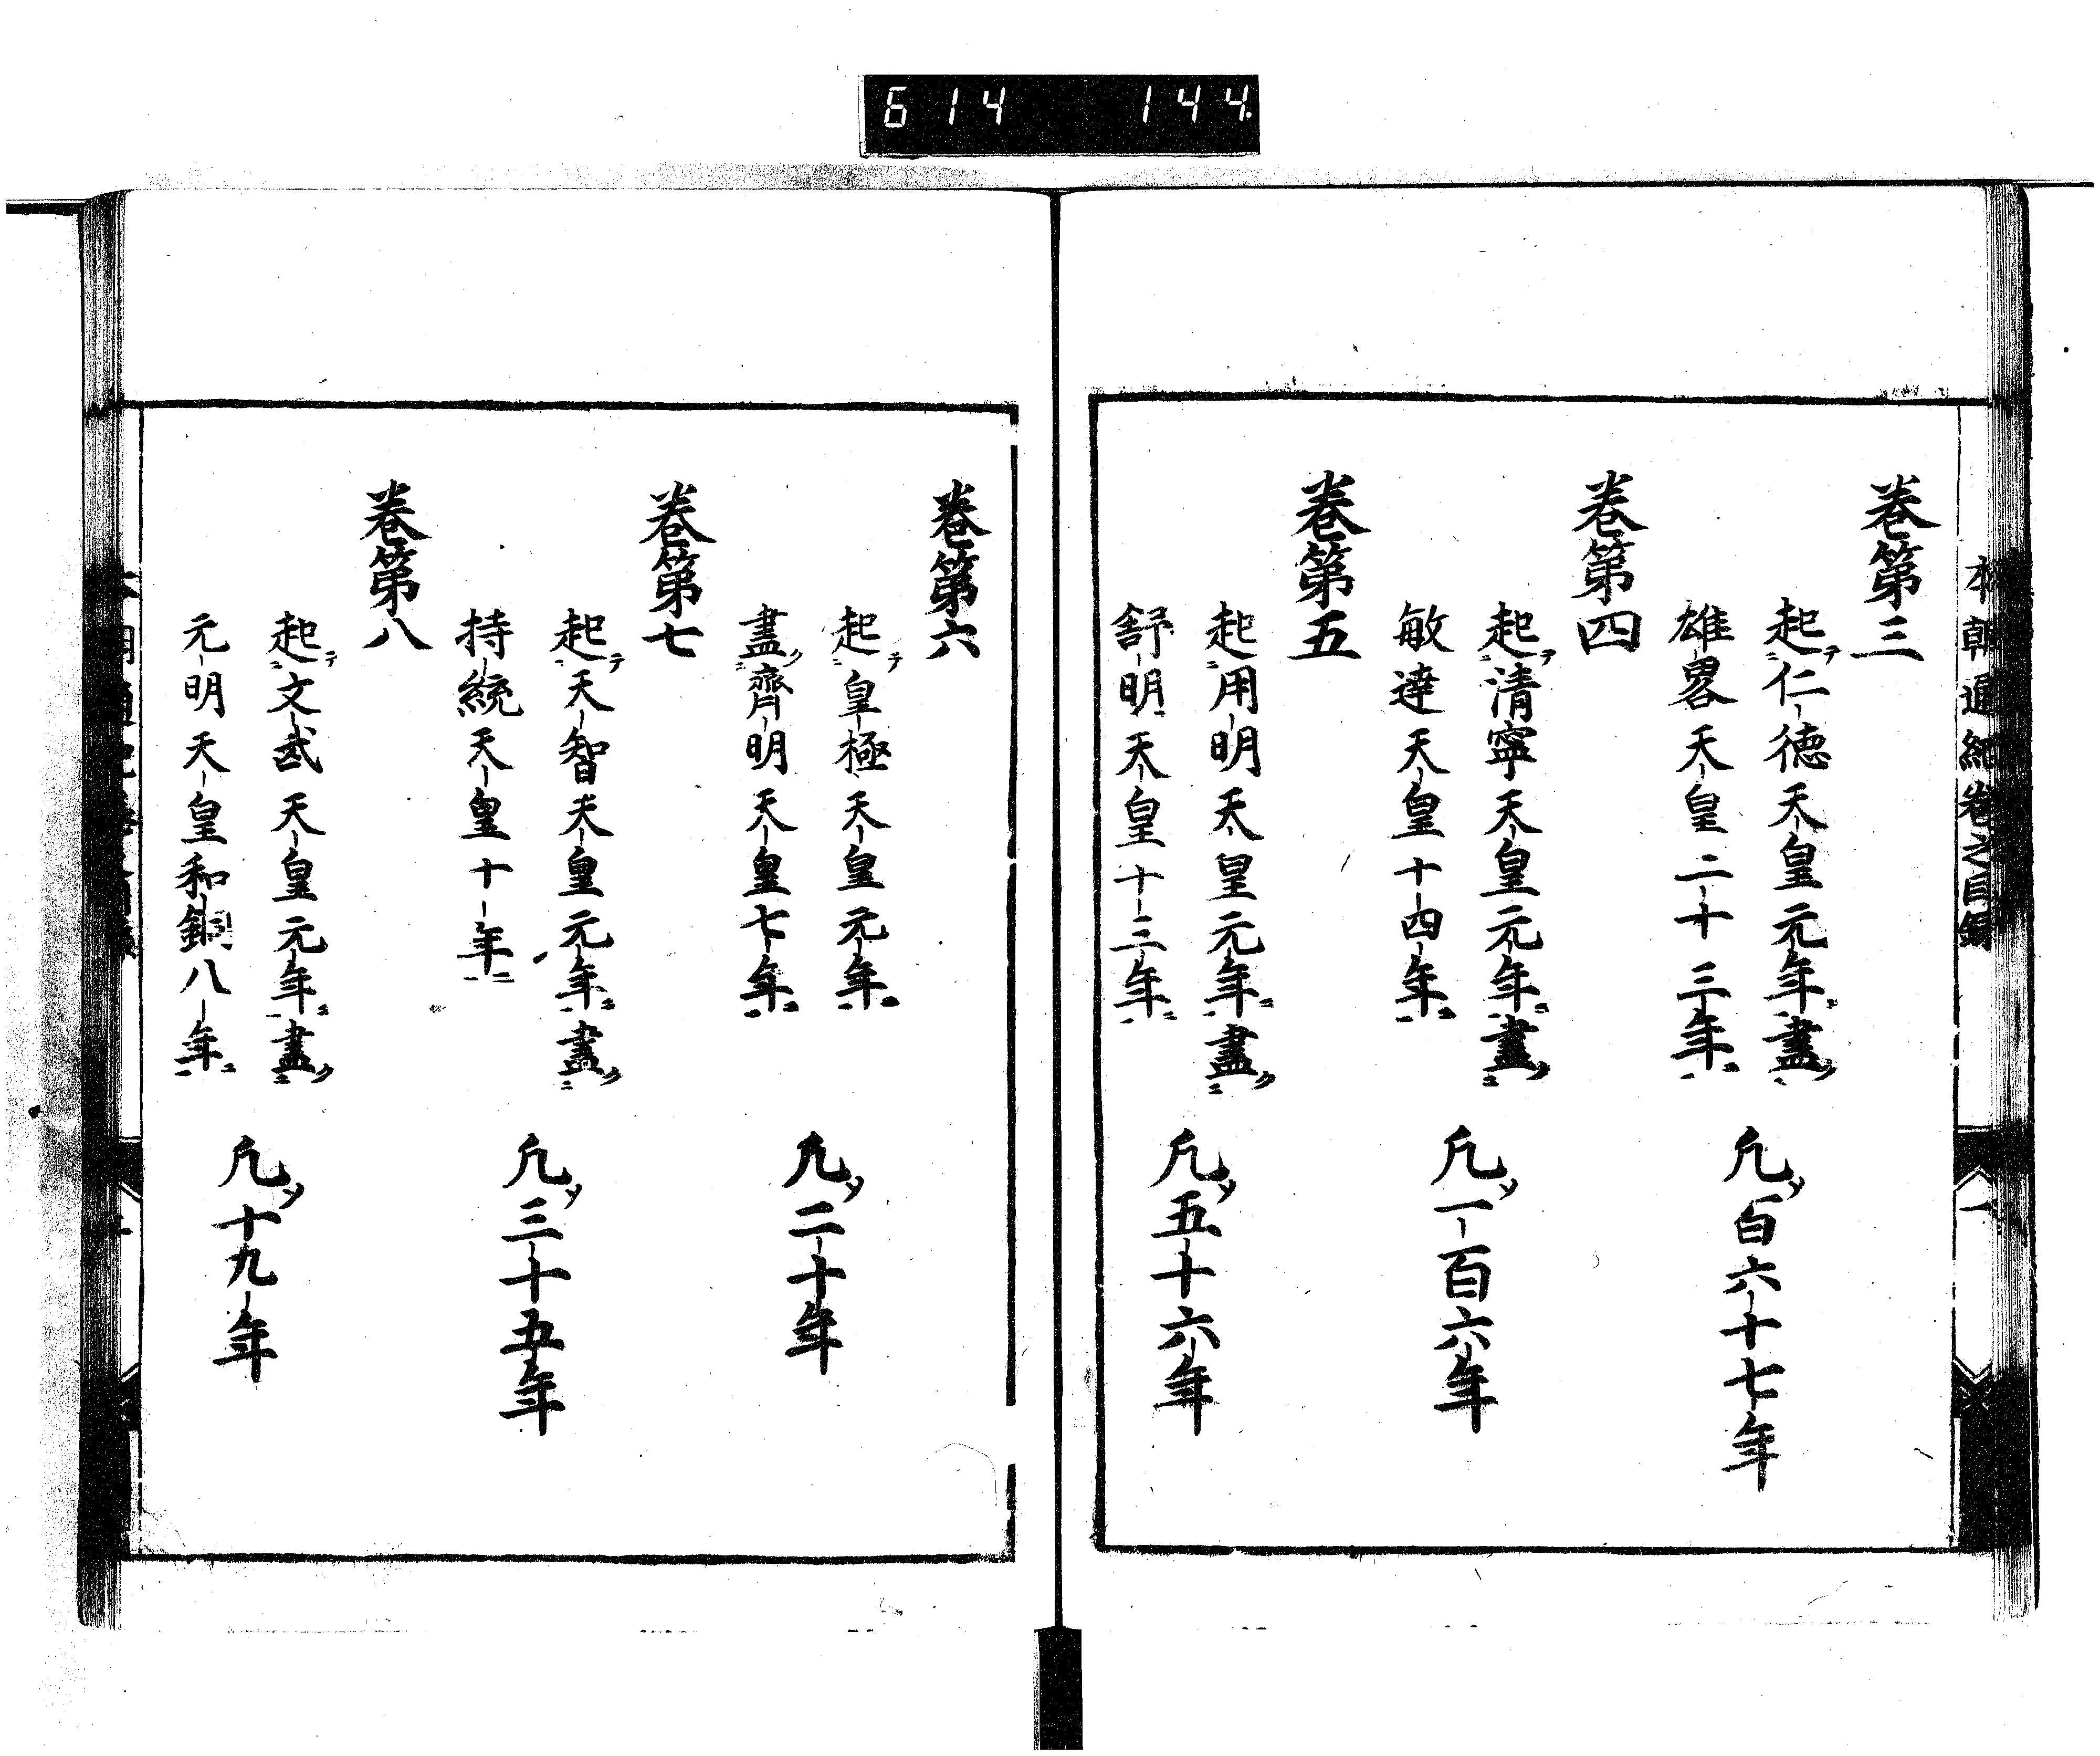 614 144
本朝通紀卷之目録
卷第三
起仁德天皇元年盡
雄畧天皇二十三年
凢百六十七年
卷第四
起清寧天皇元年盡
敏達天皇十四年
凢一百六年
卷第五
起用明天皇元年盡
舒明天皇十三年
凢五十六年
卷第六
起皇極天皇元年
盡齊明天皇七年
凢二十年
卷第七
起天智天皇元年盡
持統天皇十年
凢三十五年
卷第八
起文武天皇元年盡
元明天皇和銅八年
凢十九年